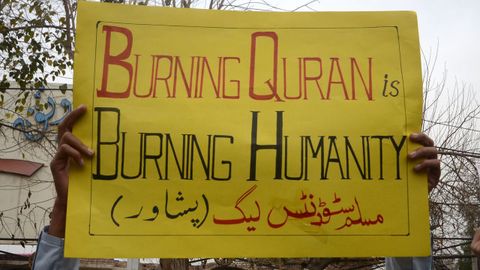 BURNING QURAN is
BURNING HUMANITY
مسلم سٹوڈنٹس لیگ (پشاور)